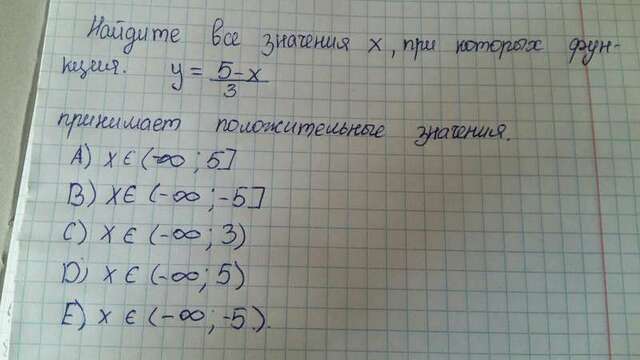 Найдите все значения x, при которых фун-
кция. y = 5-x/3
принимает положительные значения.
A) x ∈ (-∞; 5]
B) x ∈ (-∞; -5]
C) x ∈ (-∞; 3)
D) x ∈ (-∞; 5)
E) x ∈ (-∞; -5).